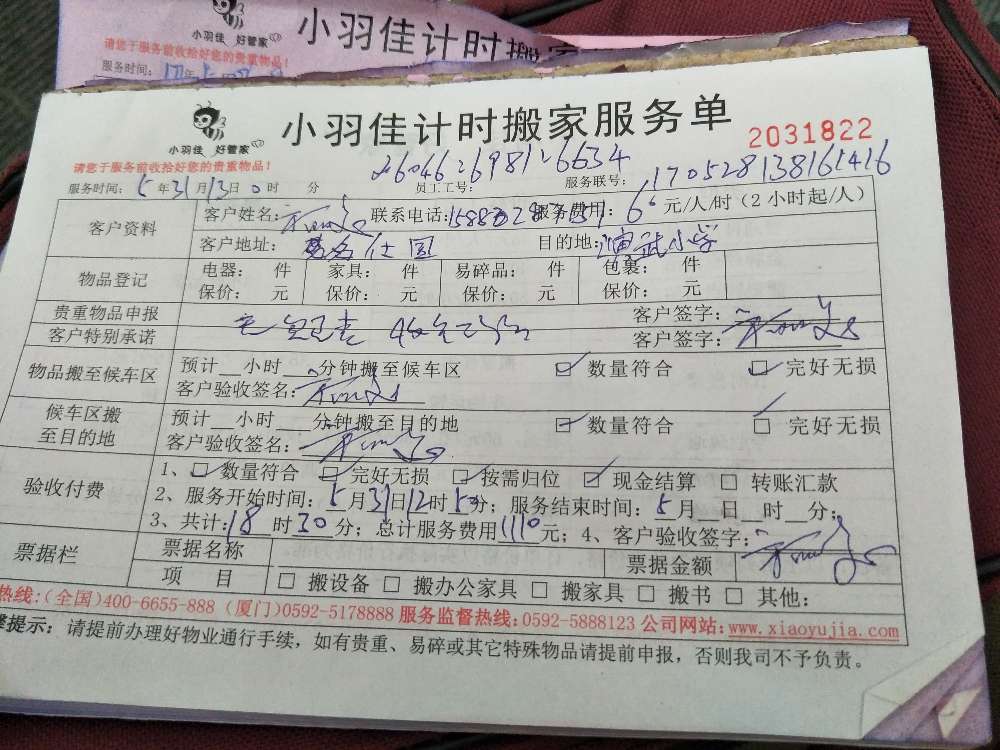 小羽佳 好管家 小羽佳计时搬
请您于服务前收拾好您的贵重物品!
服务时间:
小羽佳 好管家 小羽佳计时搬家服务单 2031822
请您于服务前收拾好您的贵重物品!
服务时间: 5年31月13日0时 分 员工工号: 服务联号: 170528138161416
客户资料 客户姓名: 联系电话: 服务费用: 66元/人/时(2小时起/人)
客户地址: 目的地: 演武小学
物品登记 电器: 件 家具: 件 易碎品: 件 包裹: 件
保价: 元 保价: 元 保价: 元 保价: 元
贵重物品申报 客户签字:
客户特别承诺 客户签字:
物品搬至候车区 预计__小时__分钟搬至候车区 ☑ 数量符合 ☑ 完好无损
客户验收签名:
候车区搬至目的地 预计__小时__分钟搬至目的地 ☑ 数量符合 ☑ 完好无损
客户验收签名:
验收付费 1、☑ 数量符合 ☑ 完好无损 ☑ 按需归位 ☑ 现金结算 □ 转账汇款
2、服务开始时间: 5月31日12时15分; 服务结束时间: 5月__日__时__分;
3、共计: 18时30分; 总计服务费用1110元; 4、客户验收签字:
票据栏 票据名称 票据金额
项 目 □ 搬设备 □ 搬办公家具 □ 搬家具 □ 搬书 □ 其他:
热线:(全国)400-6655-888 (厦门)0592-5178888 服务监督热线:0592-5888123 公司网站:www.xiaoyujia.com
提示: 请提前办理好物业通行手续,如有贵重、易碎或其它特殊物品请提前申报,否则我司不予负责。